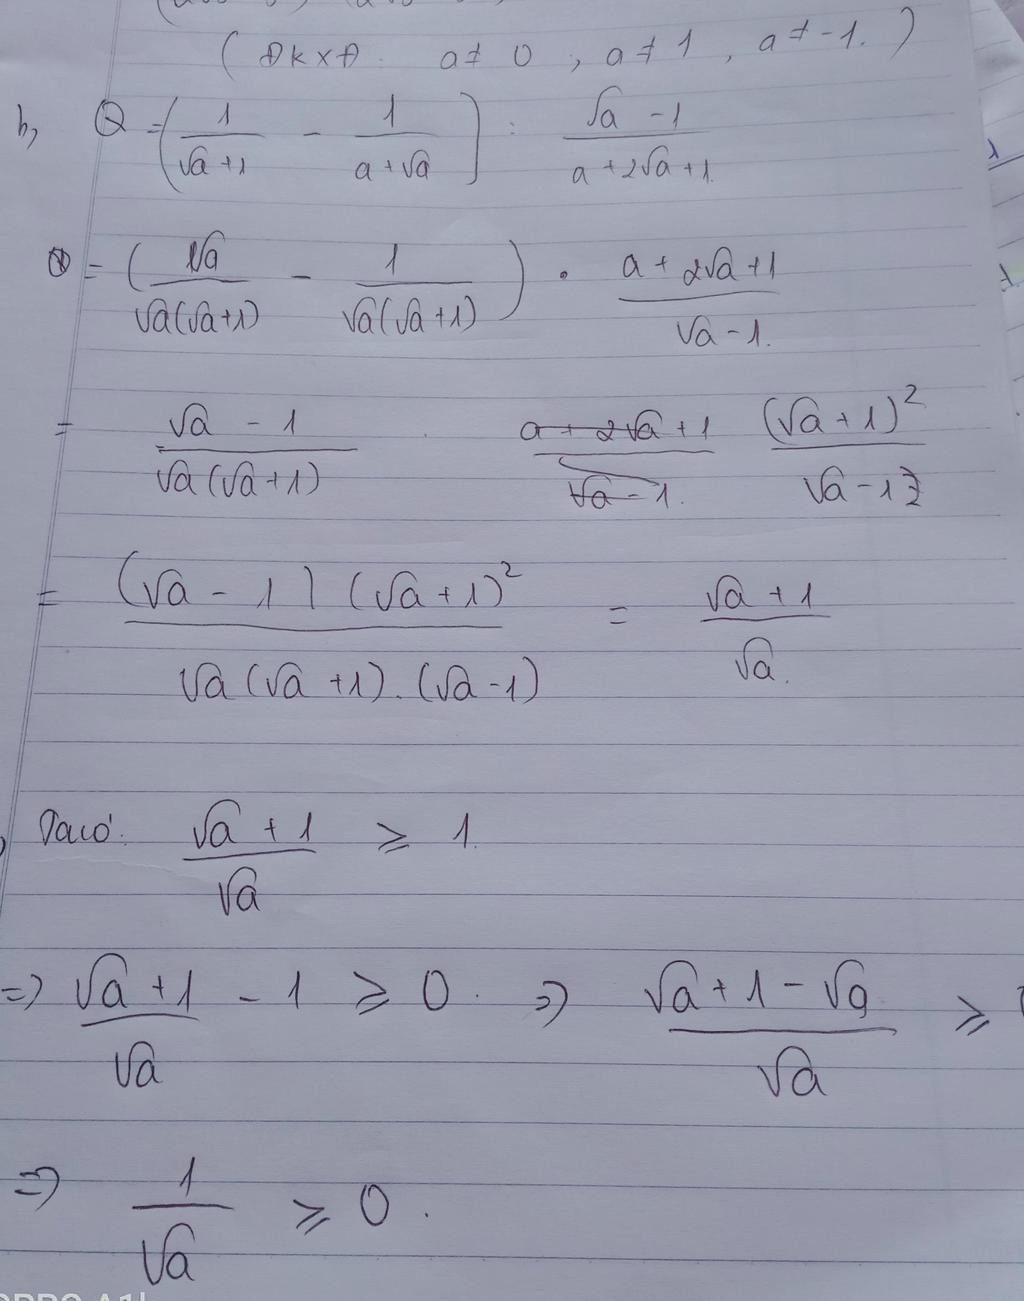 ( ĐKXĐ: a ≠ 0 , a ≠ 1 , a ≠ -1. )
b, Q = ( 1/(√a + 1) - 1/(a + √a) ) : (√a - 1)/(a + 2√a + 1).
Q = ( √a/(√a(√a+1)) - 1/(√a(√a+1)) ) . (a + 2√a + 1)/(√a - 1).
= (√a - 1)/(√a(√a+1)) . (a + 2√a + 1)/(√a - 1). (√a + 1)²/(√a - 1)
= (√a - 1)(√a + 1)²/(√a(√a + 1).(√a - 1)) = (√a + 1)/√a.
Ta có: (√a + 1)/√a ≥ 1.
=> (√a + 1)/√a - 1 ≥ 0. => (√a + 1 - √a)/√a ≥
=> 1/√a ≥ 0.